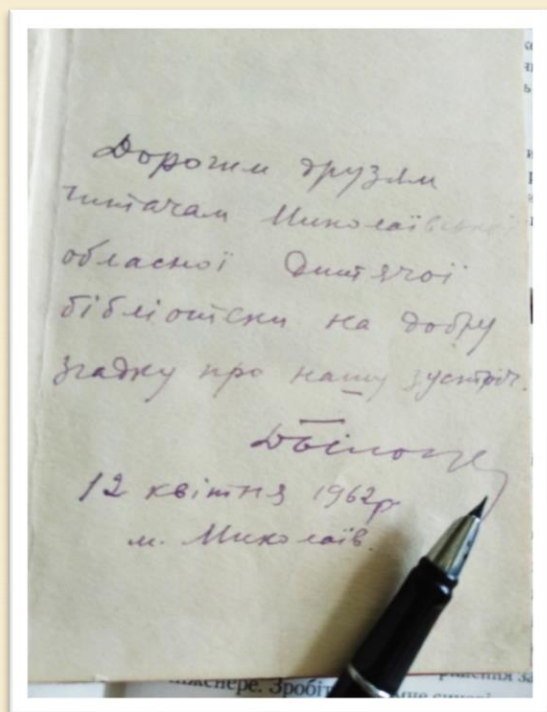 Дорогим друзям
читачам Миколаївської
обласної Дитячої
бібліотеки на добру
згадку про нашу зустріч.
12 квітня 1962р.
м. Миколаїв.
женере. Зробіт